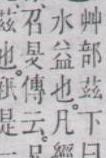 艸部茲下
水益也。凡
召旻傳云。
茲也。
是